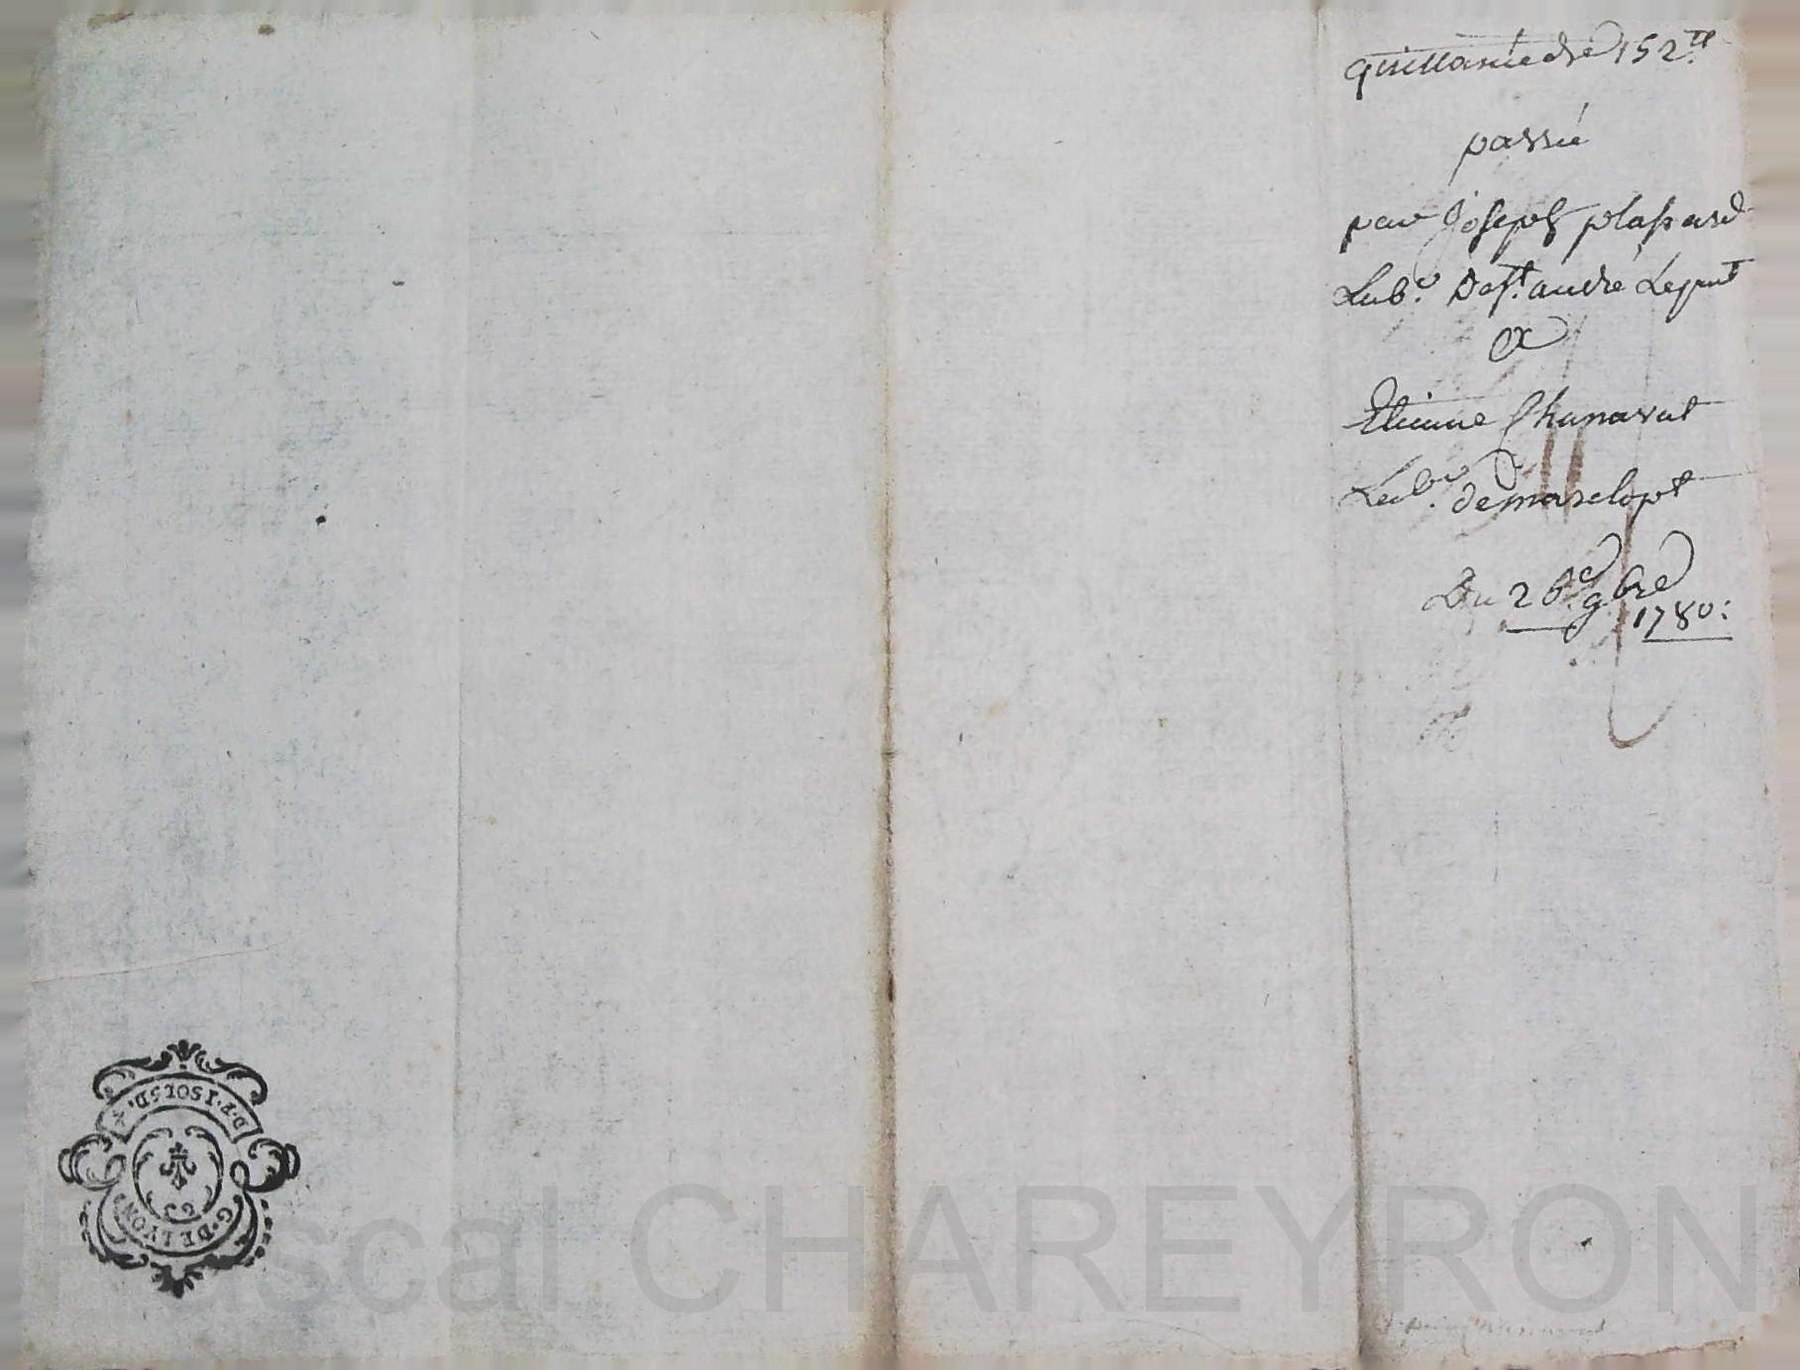 quittance de 152 ₶
passée
par Joseph plassard
Lab.r De st. andré Lepuit
a
Etienne Chanavat
Lab.r de marclopt
Du 26e 9bre
1780:
D.P.I.SOL5D.
G.DE LYON
Pascal CHAREYRON